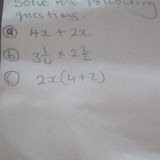 Solve the following
questions.
(a) 4x + 2x
(b) 3 1/4 × 2 3/2
(c) 2x(4+2)